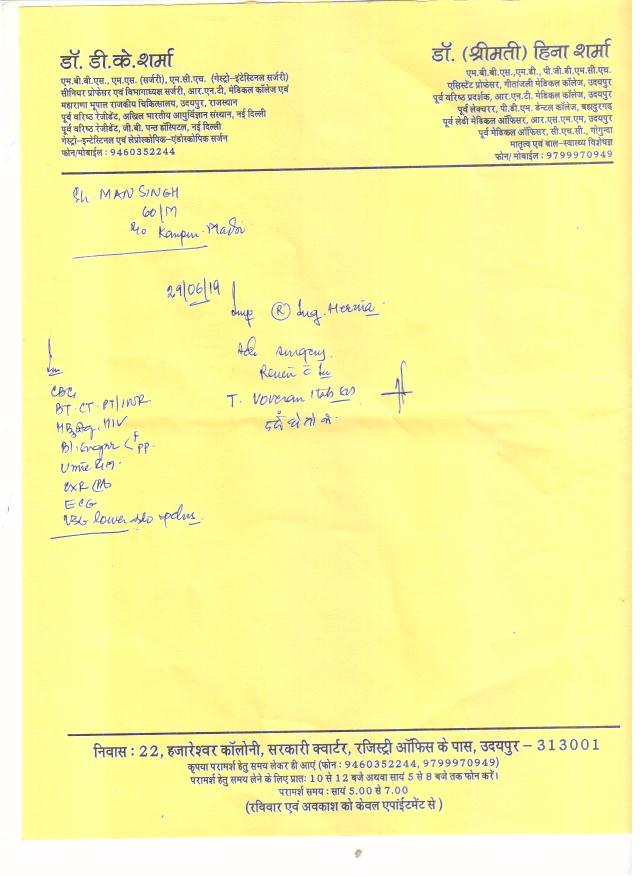 डॉ. डी.के.शर्मा
एम.बी.बी.एस., एम.एस. (सर्जरी), एम.सी.एच. (गेस्ट्रो-इंटेस्टिनल सर्जरी)
सीनियर प्रोफेसर एवं विभागाध्यक्ष सर्जरी, आर.एन.टी. मेडिकल कॉलेज एवं
महाराणा भूपाल राजकीय चिकित्सालय, उदयपुर, राजस्थान
पूर्व वरिष्ठ रेजीडेंट, अखिल भारतीय आयुर्विज्ञान संस्थान, नई दिल्ली
पूर्व वरिष्ठ रेजीडेंट, जी.बी. पन्त हॉस्पिटल, नई दिल्ली
गेस्ट्रो-इन्टेस्टिनल एवं लेप्रोस्कोपिक-एंडोस्कोपिक सर्जन
फोन/मोबाईल : 9460352244
डॉ. (श्रीमती) हिना शर्मा
एम.बी.बी.एस.,एम.डी., पी.जी.डी.एम.सी.एच.
एसिस्टेंट प्रोफेसर, गीतांजली मेडिकल कॉलेज, उदयपुर
पूर्व वरिष्ठ प्रदर्शक, आर.एन.टी. मेडिकल कॉलेज, उदयपुर
पूर्व लेक्चरर, पी.डी.एम. डेन्टल कॉलेज, बहादुरगढ़
पूर्व लेडी मेडिकल ऑफिसर, आर.एस.एम.एम, उदयपुर
पूर्व मेडिकल ऑफिसर, सी.एच.सी., गोगुन्दा
मातृत्व एवं बाल-स्वास्थ्य विशेषज्ञ
फोन/ मोबाईल : 9799970949
Sh. MAN SINGH
60/M
R/o Kanpur
29/06/19
Imp (R) Ing. Hernia
Adv surgery
Review c Inv
T. Voveran 1 tab
दर्द हो तो
Inv
CBC
BT. CT. PT/INR
HBsAg, HIV
Bl. Sugar < F PP
Urine
CXR (PA)
ECG
USG lower abdo
निवास : 22, हजारेश्वर कॉलोनी, सरकारी क्वार्टर, रजिस्ट्री ऑफिस के पास, उदयपुर – 313001
कृपया परामर्श हेतु समय लेकर ही आएं (फोन : 9460352244, 9799970949)
परामर्श हेतु समय लेने के लिए प्रातः 10 से 12 बजे अथवा सायं 5 से 8 बजे तक फोन करें।
परामर्श समय : सायं 5.00 से 7.00
(रविवार एवं अवकाश को केवल एपांईटमेंट से )